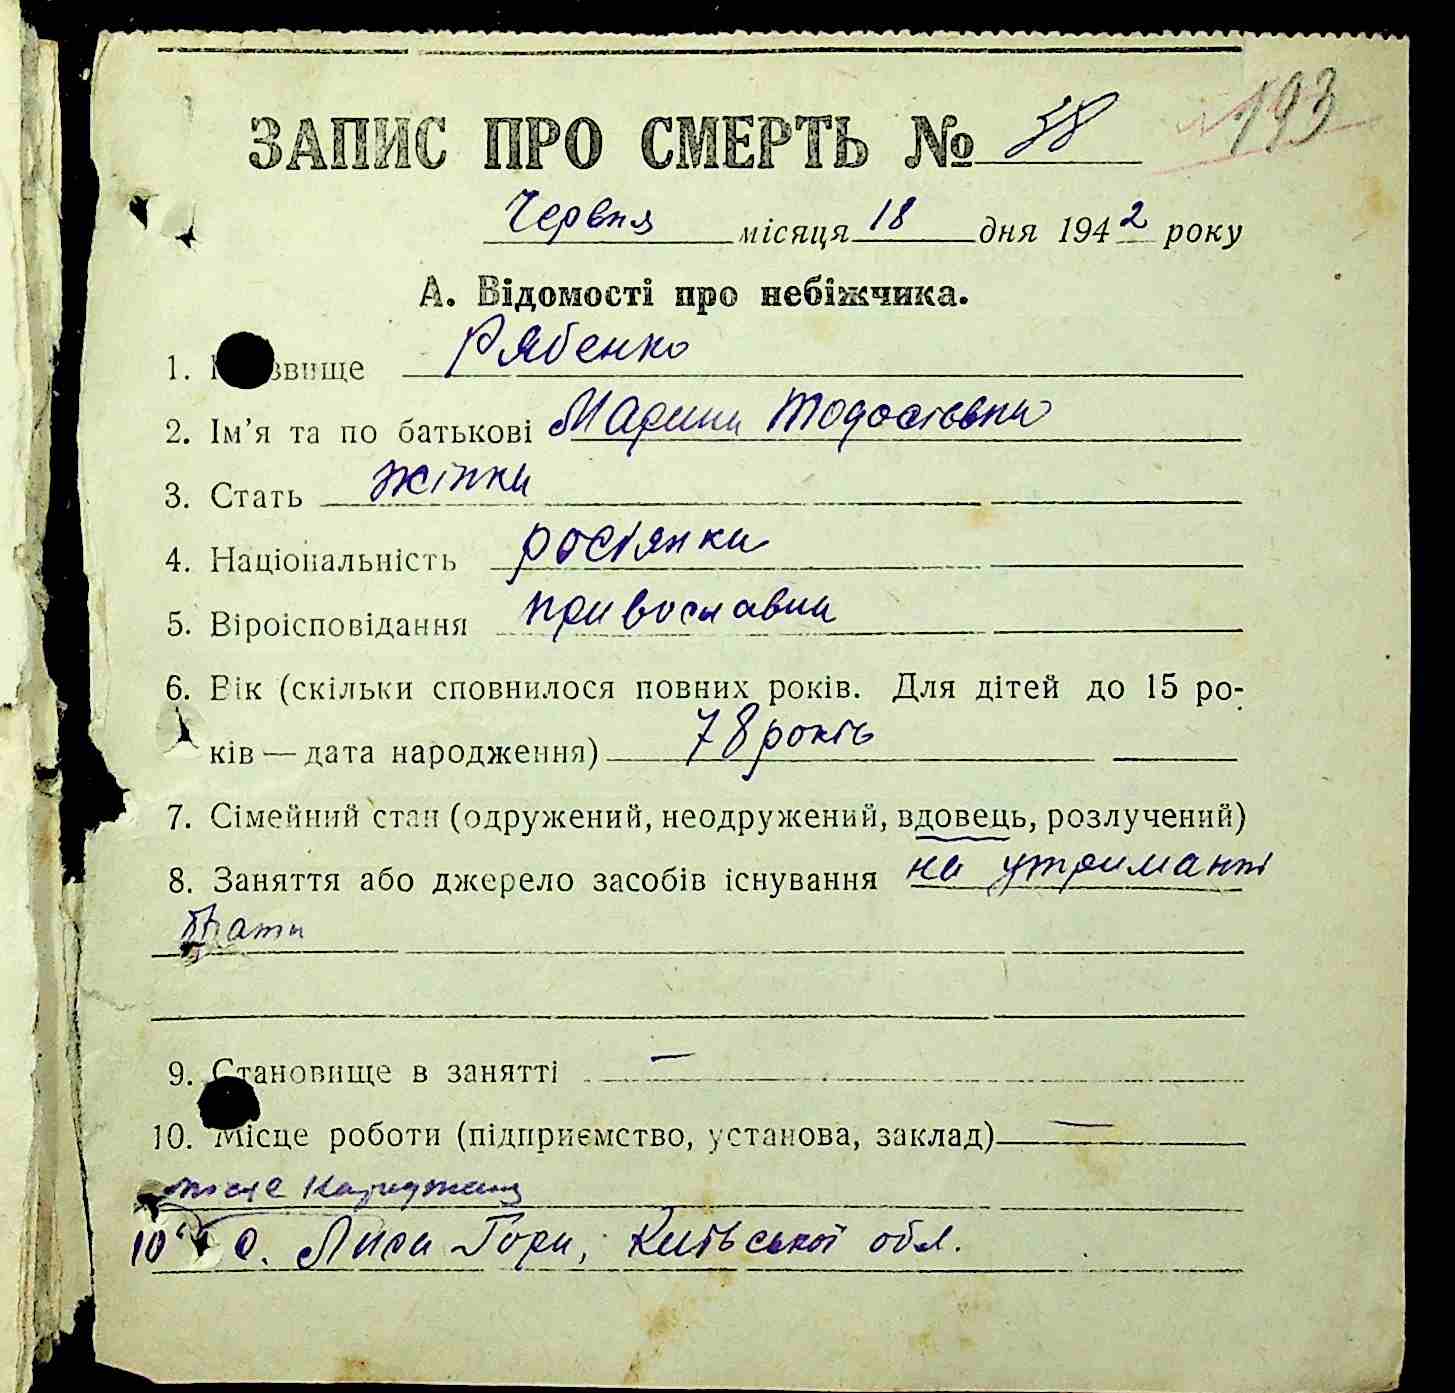 193
ЗАПИС ПРО СМЕРТЬ № 58
Червня місяця 18 дня 1942 року
А. Відомості про небіжчика.
1. Прізвище Рябенко
2. Ім'я та по батькові Марина Тодосіевна
3. Стать жінка
4. Національність росіянка
5. Віроісповідання православна
6. Вік (скільки сповнилося повних років. Для дітей до 15 ро-
ків — дата народження) 78 років
7. Сімейний стан (одружений, неодружений, вдовець, розлучений)
8. Заняття або джерело засобів існування на утриманні
9. Становище в занятті —
10. Місце роботи (підприємство, установа, заклад) —
місце народження
10а с. Лиса Гора, Київської обл.